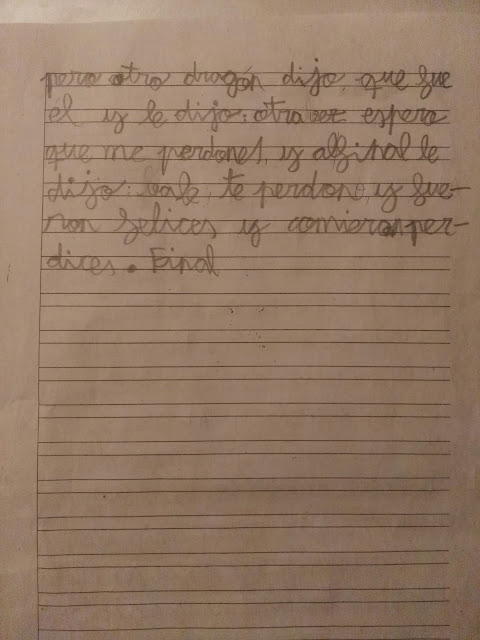 pero otro dragón dijo, que fue
él y le dijo: otra vez espero
que me perdones, y alfinal le
dijo: bale, te perdono, y fue-
ron felices y comieron per-
dices. Final